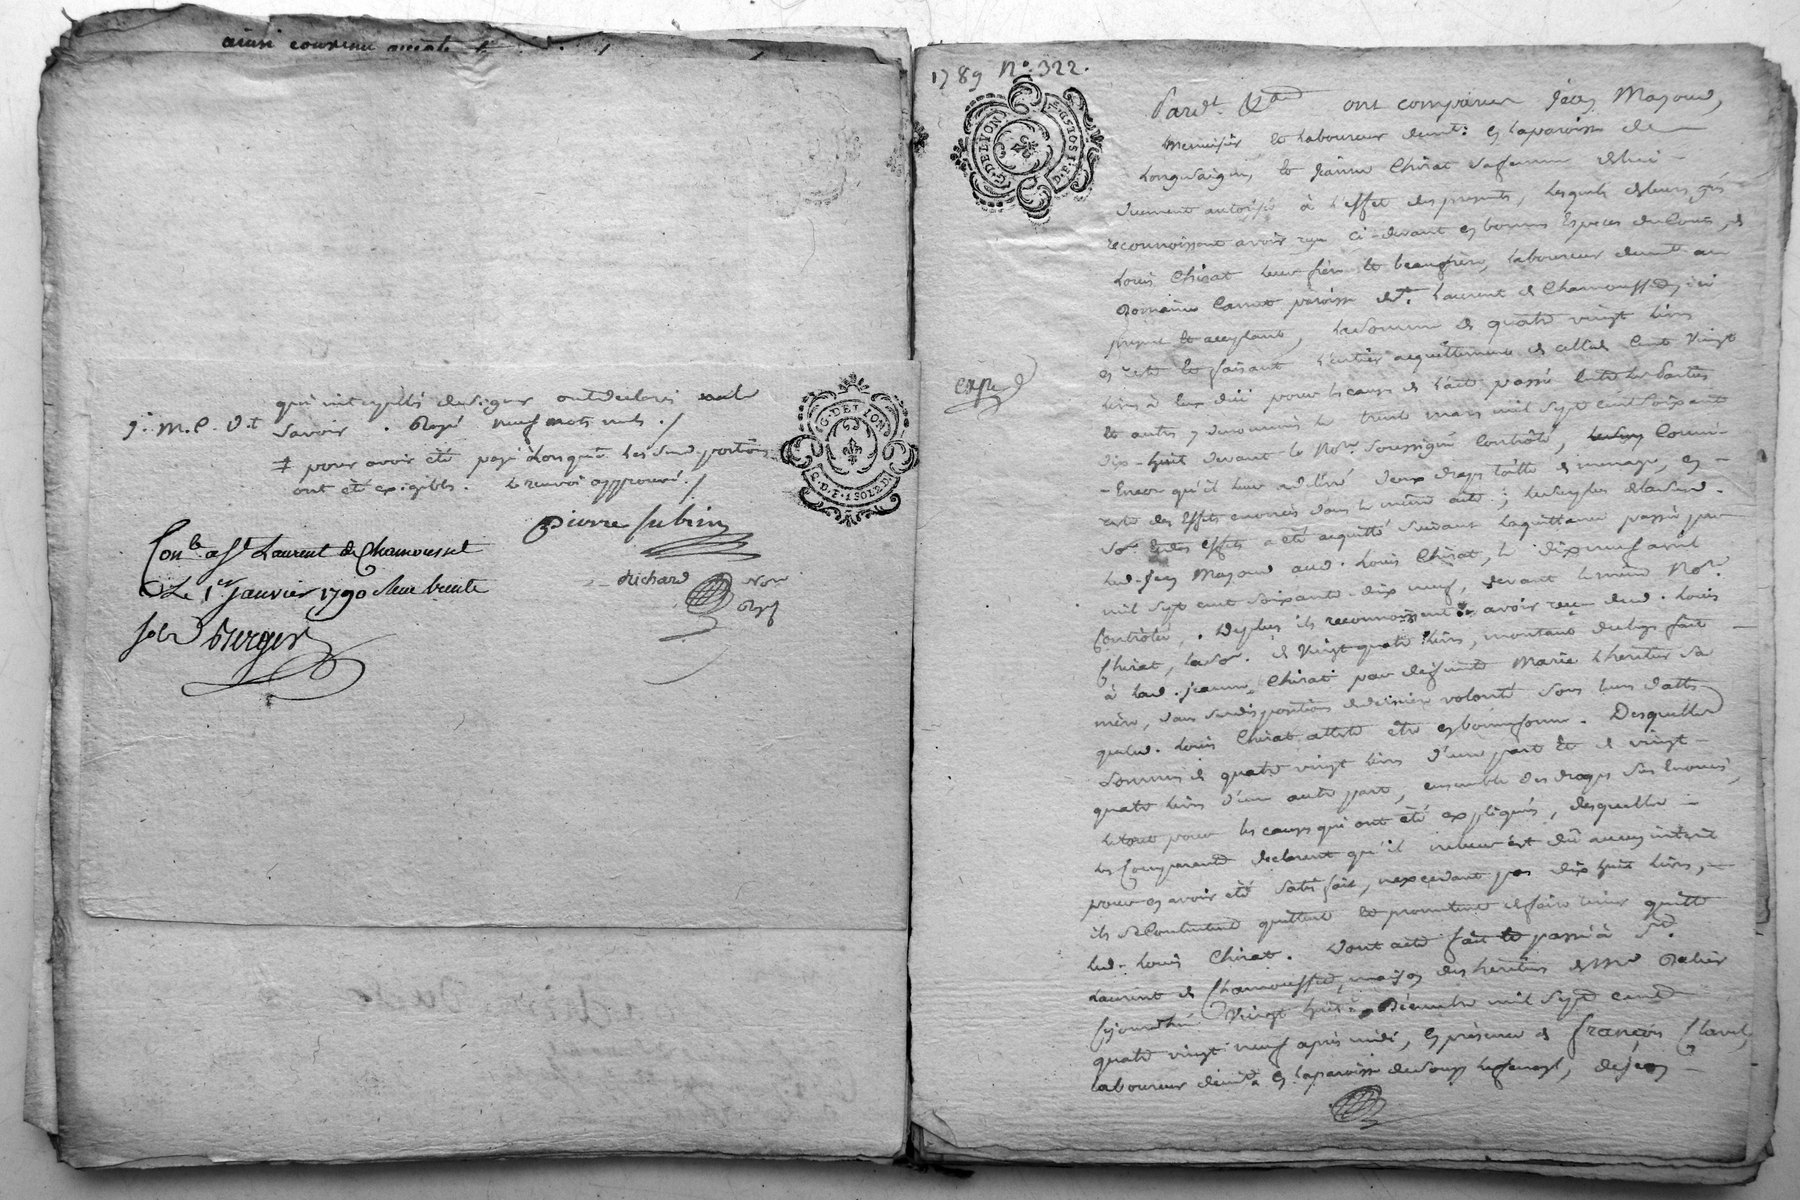 ainsi convenu
qui interpellés de signer ont déclaré ne le
j. m. C. d.t savoir . Rayé neuf mots nuls ./
‡ pour avoir été payé lorsque les dues portions
ont été exigibles . le renvoi approuvé ./
G. DE LION
G. D. P. 1 SOL 8 D.
Pierre Subrin
Con.lé a S.t Laurent de Chamousset
Le 1.er Janvier 1790 Reçu trente
sols Berger
Richard Not.
Roy.
1789 N.o 322.
G. DE LYON
Pard.t ont comparu Jean Mazoud,
Menuisier et laboureur demt. en la paroisse de
Longesaigne, et Jeanne Chirat sa femme de lui
duement autorisée à l'effet des presentes, lesquels de leurs grés
reconnoissent avoir reçu ci-devant en bonnes Especes du Cours, de
Louis Chirat leur frère et beaufrère, laboureur demt. au
Domaine paroisse de St. Laurent de Chamousset, ici
present et acceptant, la somme de quatre vingt livres
en reste et faisant l'entier acquittement de celle de Cent vingt
livres à eux dûe pour les causes de l'acte passé entre les parties
expé.
et autres y denommés le trente mars mil sept cent soixante
dix-huit devant le No.re soussigné Controlé, Comme
Encor qu'il leur a delivré deux draps toille de menage, en
reste des Effets énoncés dans le même acte ; le surplus de la dite
so.e et des effets a été acquitté suivant la quittance passée par
led. Jean Mazoud aud. Louis Chirat, le dix neuf avril
mil sept cent soixante dix neuf, devant le même No.re
Controlée, . De plus ils reconnoissent avoir reçu dud. Louis
Chirat, la so.e de vingt quatre livres, montant du legs fait
à lad. Jeanne Chirat par défunte Marie Lheritier sa
mère, dans ses dispositions de dernière volonté sous leurs dattes
que led. Louis Chirat atteste être en bonne forme . Desquelles
sommes de quatre vingt livres d'une part et de vingt
quatre livres d'une autre part, ensemble des draps sus énoncés,
le tout pour les causes qui ont été expliquées, desquelles
les Comparants declarent qu'il ne leur est dû aucun interet
pour en avoir été satisfait, n'excedant pas dix huit livres,
ils se Contentent quittent et promettent de faire tenir quitte
led. Louis Chirat . Dont acte fait et passé à St.
Laurent de Chamousset, maison des heritiers de M.e
ce jourd'hui vingt huit Décembre mil sept cent
quatre vingt neuf après midi, En présence de françois Clavel
laboureur demt. en la paroisse de de Jean